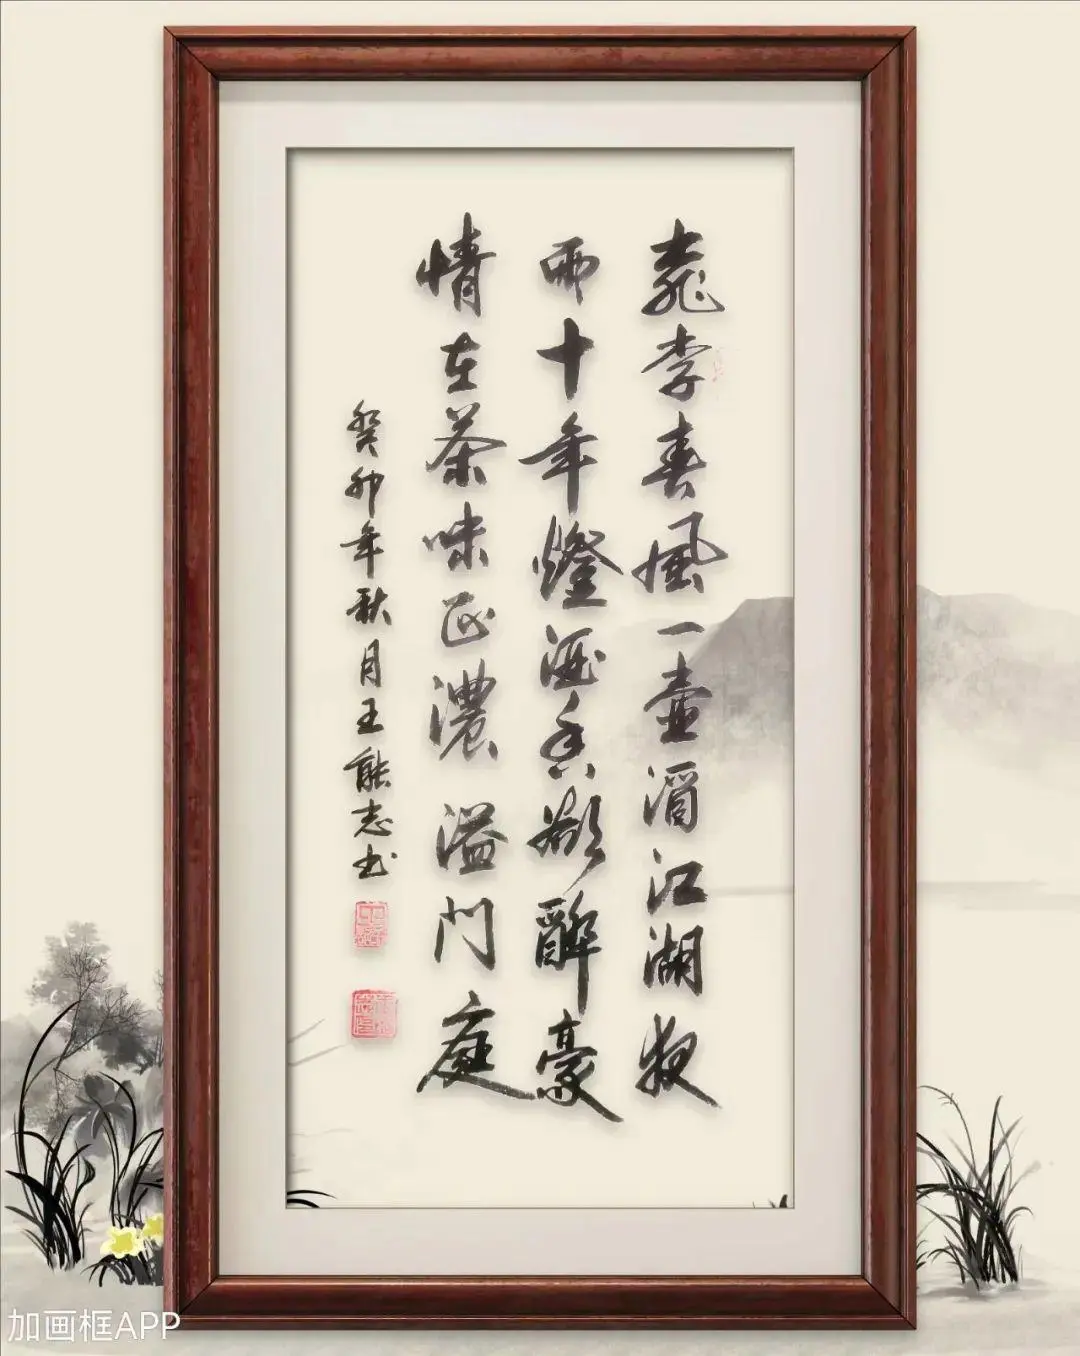 桃李春風一壺酒江湖夜
雨十年燈酒香欲醉豪
情在茶味正濃溢門庭
癸卯年秋月王能志书
加画框APP